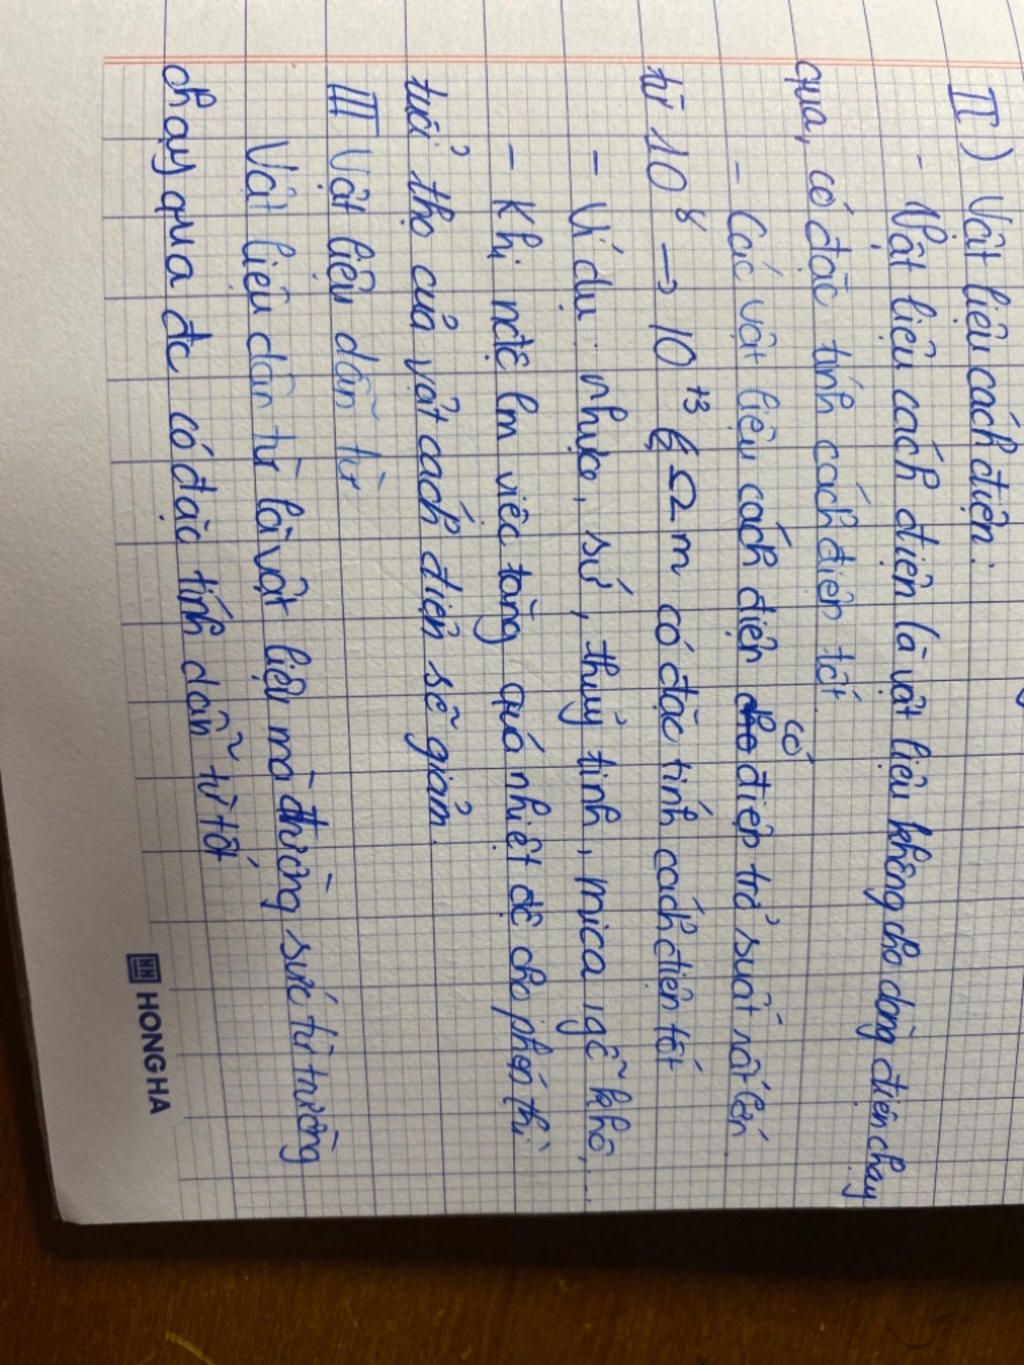 II) Vật liệu cách điện:
- Vật liệu cách điện là vật liệu không cho dòng điện chạy
qua, có đặc tính cách điện tốt.
- Các vật liệu cách điện có điện trở suất rất lớn
từ 10⁸ → 10¹³ Ωm có đặc tính cách điện tốt
- Ví dụ: nhựa, sứ, thủy tinh, mica, gỗ khô,...
- Khi nđộ lm việc tăng quá nhiệt độ cho phép thì
tuổi thọ của vật cách điện sẽ giảm.
III Vật liệu dẫn từ
Vật liệu dẫn từ là vật liệu mà đường sức từ trường
chạy qua đc có đặc tính dẫn từ tốt
HONG HA